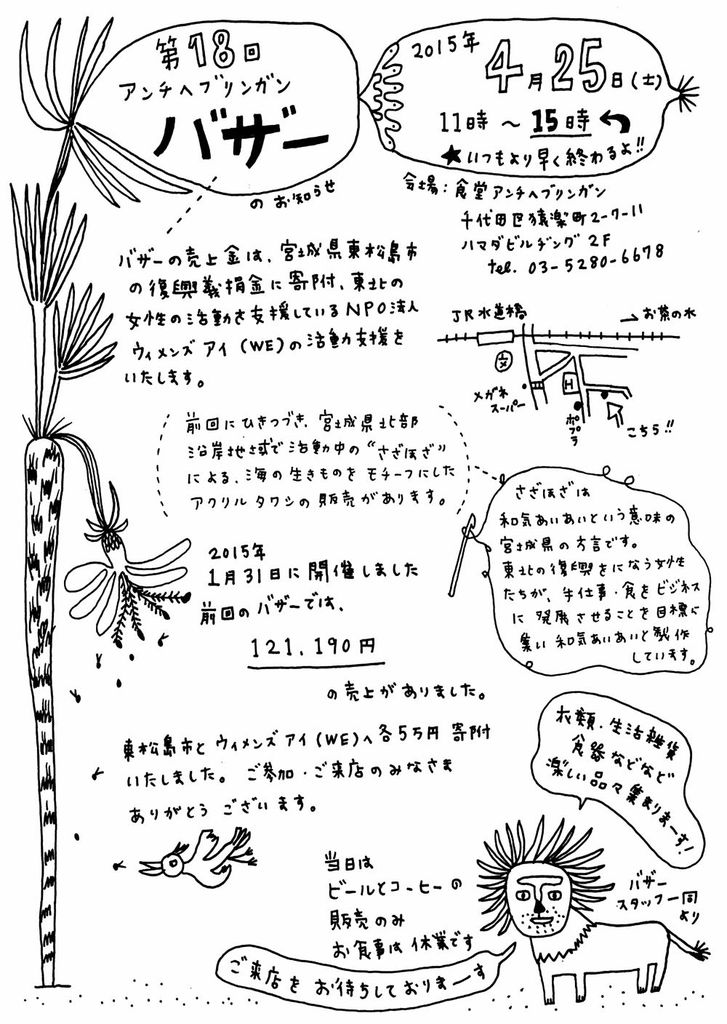 第18回
アンチヘブリンガン
バザー
のお知らせ
2015年
4月25日(土)
11時～15時
★いつもより早く終わるよ!!
会場:食堂アンチヘブリンガン
千代田区猿楽町2-7-11
ハマダビルヂング2F
tel. 03-5280-6678
バザーの売上金は、宮城県東松島市
の復興義捐金に寄附、東北の
女性の活動を支援しているNPO法人
ウィメンズアイ(WE)の活動支援を
いたします。
JR水道橋
→お茶の水
文
メガネ
スーパー
H
ポプラ
こちら!!
前回にひきつづき、宮城県北部
沿岸地域で活動中の“さざほざ”
による、海の生きものをモチーフにした
アクリルタワシの販売があります。
さざほざは
和気あいあいという意味の
宮城県の方言です。
東北の復興をになう女性
たちが、手仕事・食をビジネス
に発展させることを目標に
集い和気あいあいと製作
しています。
2015年
1月31日に開催しました
前回のバザーでは、
121,190円
の売上がありました。
東松島市とウィメンズアイ(WE)へ各5万円寄附
いたしました。ご参加・ご来店のみなさま
ありがとうございます。
衣類・生活雑貨
食器などなど
楽しい品々集まりまーす!
当日は
ビールとコーヒーの
販売のみ
お食事は休業です
バザー
スタッフ一同
より
ご来店をお待ちしておりまーす